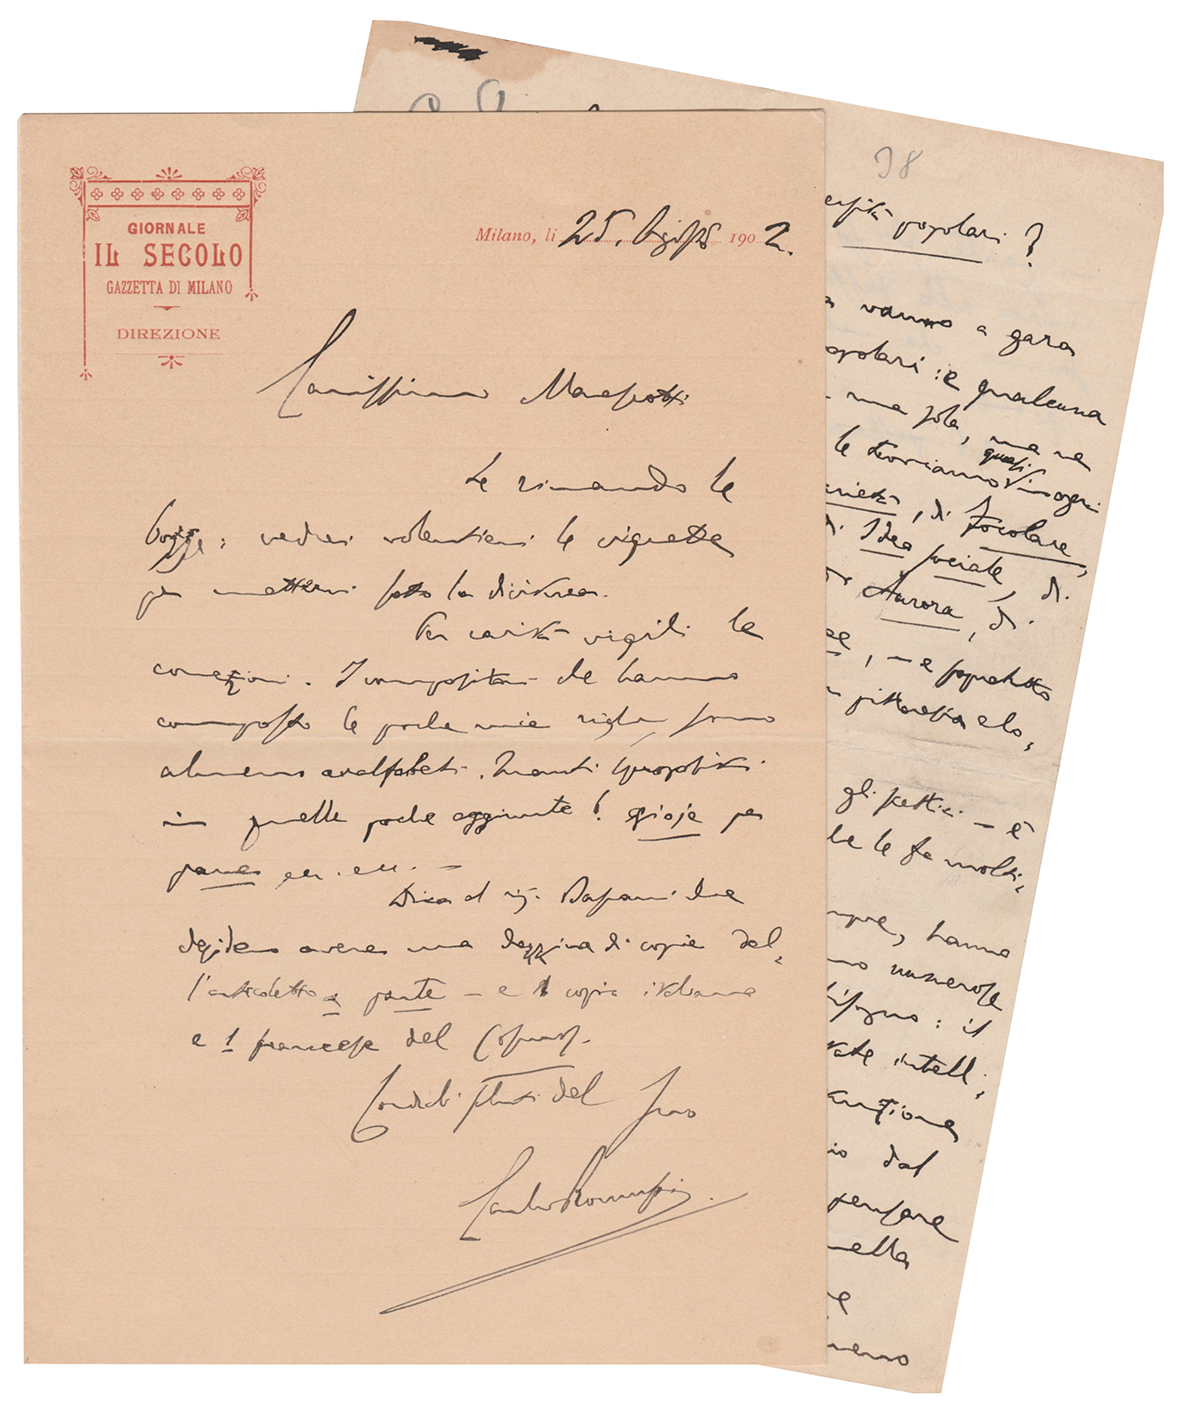 GIORNALE
IL SECOLO
GAZZETTA DI MILANO
DIREZIONE
Milano, li 25. Agosto 1902.
Carissimo
Le rimando le
bozze; vedrei volentieri le vignette
per mettervi sotto la dicitura.
Per carità vigili le
correzioni. I compositori che hanno
composto le poche mie righe sono
almeno analfabeti. Quanti spropositi
in quelle poche aggiunte! gioje per
ecc. ecc. —
Dica al sig. che
desidero avere una dozzina di copie del-
l'articoletto a parte — e 1 copia italiana
e 1 francese del Cosmos.
Cordiali saluti dal suo
Carlo Romussi.
38
popolari?
vanno a gara
popolari: e qualcuna
una sola, ma ne
le troviamo quasi in ogni
di Focolare,
di Idea sociale, di
Aurora, di
, — e soprattutto
pittoresca elo-
gli scettici — è
le fa molti-
hanno
numerose
bisogno: il
intell-
dal
pensare
nella